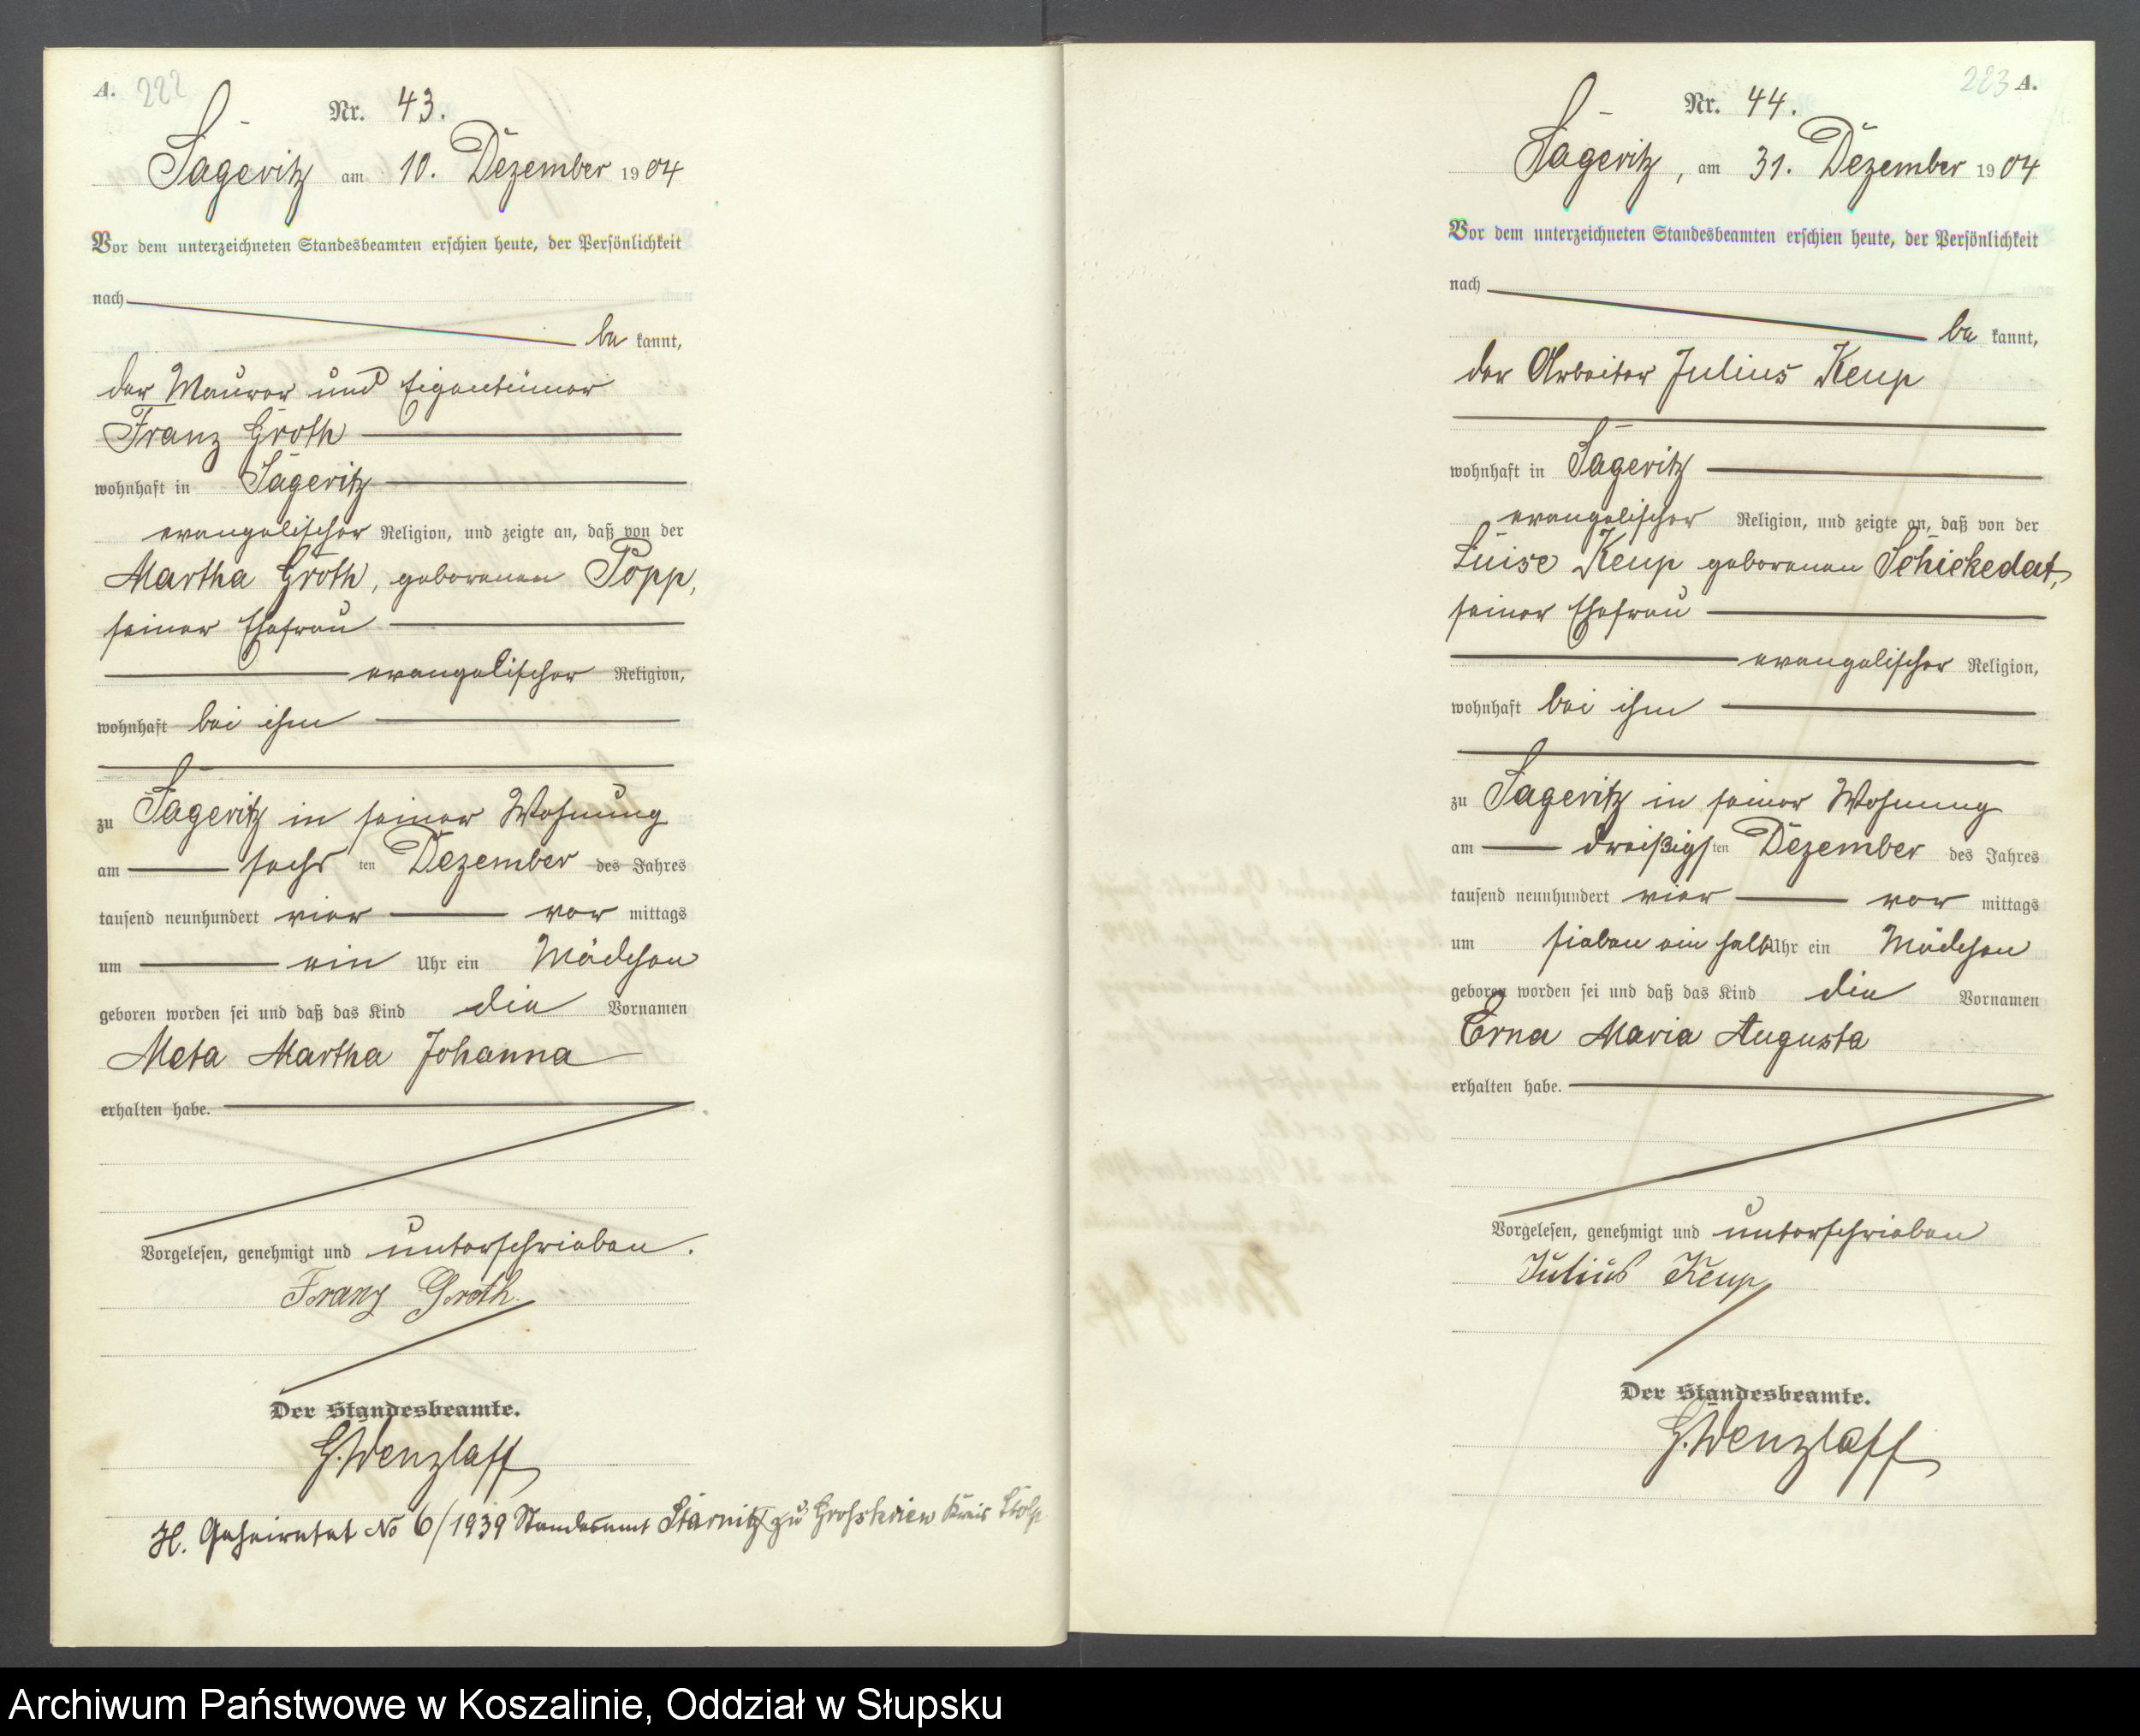 A. 222
Nr. 43.
Sageritz am 10. Dezember 1904
Vor dem unterzeichneten Standesbeamten erschien heute, der Persönlichkeit
nach
be kannt,
der Maurer und Eigentümer
Franz Groth
wohnhaft in Sageritz
evangelischer Religion, und zeigte an, daß von der
Martha Groth, geborenen Popp,
seiner Ehefrau
evangelischer Religion,
wohnhaft bei ihm
zu Sageritz in seiner Wohnung
am sechs ten Dezember des Jahres
tausend neunhundert vier vor mittags
um ein Uhr ein Mädchen
geboren worden sei und daß das Kind die Vornamen
Meta Martha Johanna
erhalten habe.
Vorgelesen, genehmigt und unterschrieben.
Franz Groth.
Der Standesbeamte.
G. Wenzlaff
H. Geheiratet No 6/1939 Standesamt Starnitz zu Kreis Stolp
223 A.
Nr. 44.
Sageritz, am 31. Dezember 1904
Vor dem unterzeichneten Standesbeamten erschien heute, der Persönlichkeit
nach
be kannt,
der Arbeiter Julius Keup
wohnhaft in Sageritz
evangelischer Religion, und zeigte an, daß von der
Luise Keup geborenen Schickedat,
seiner Ehefrau
evangelischer Religion,
wohnhaft bei ihm
zu Sageritz in seiner Wohnung
am dreißigs ten Dezember des Jahres
tausend neunhundert vier vor mittags
um sieben ein halb Uhr ein Mädchen
geboren worden sei und daß das Kind die Vornamen
Erna Maria Augusta
erhalten habe.
Vorgelesen, genehmigt und unterschrieben
Julius Keup
Der Standesbeamte.
G. Wenzlaff
Archiwum Państwowe w Koszalinie, Oddział w Słupsku